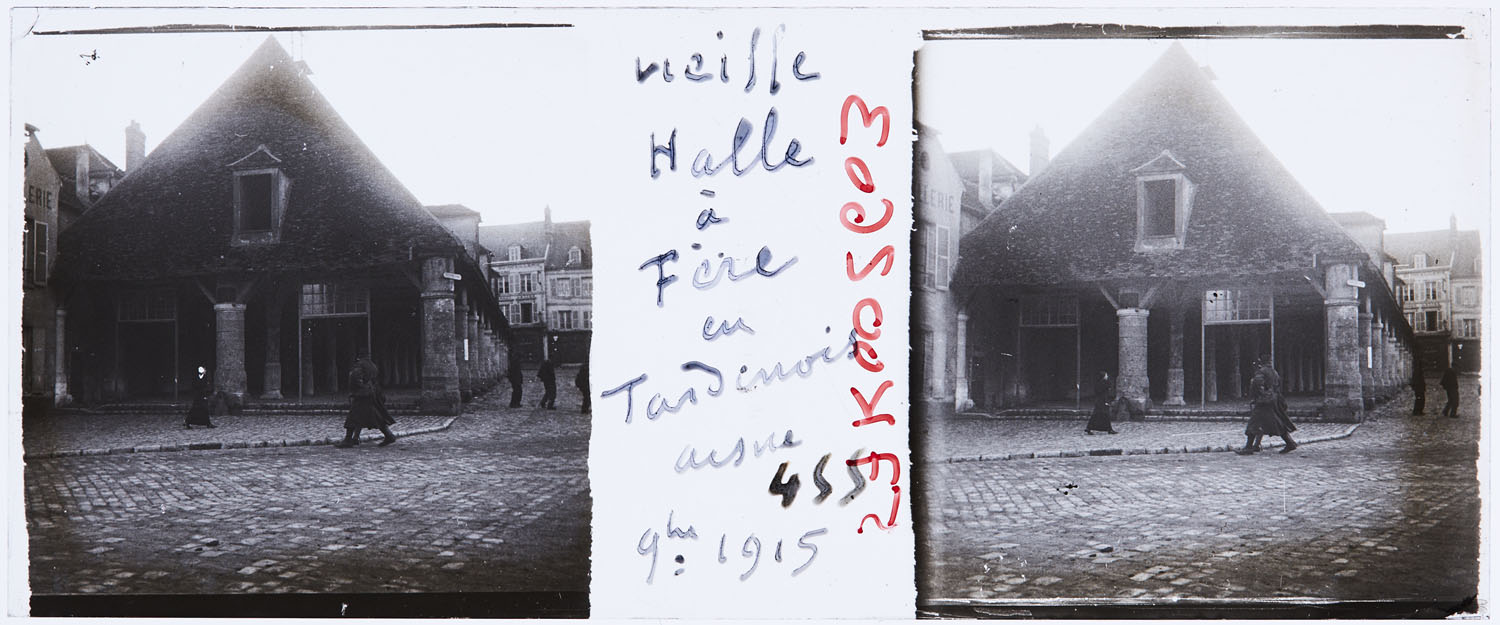 vieille
Halle
à
Fère
en
Tardenois
aisne
455
9bre 1915
LERIE
LERIE